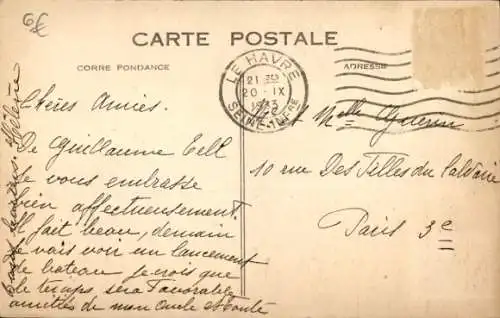 6€
CARTE POSTALE
CORRESPONDANCE
ADRESSE
LE HAVRE
21 30
20 - IX
1933
SEINE-INFRE
Chères Amies.
De Guillaume Tell
je vous embrasse
bien affectueusement
Il fait beau, demain
je vais voir un lancement
de bateau je crois que
le temps sera favorable
amitiés de mon oncle et tante
Hélène
Melle Guerin
10 rue Des Filles du Calvaire
Paris 3e